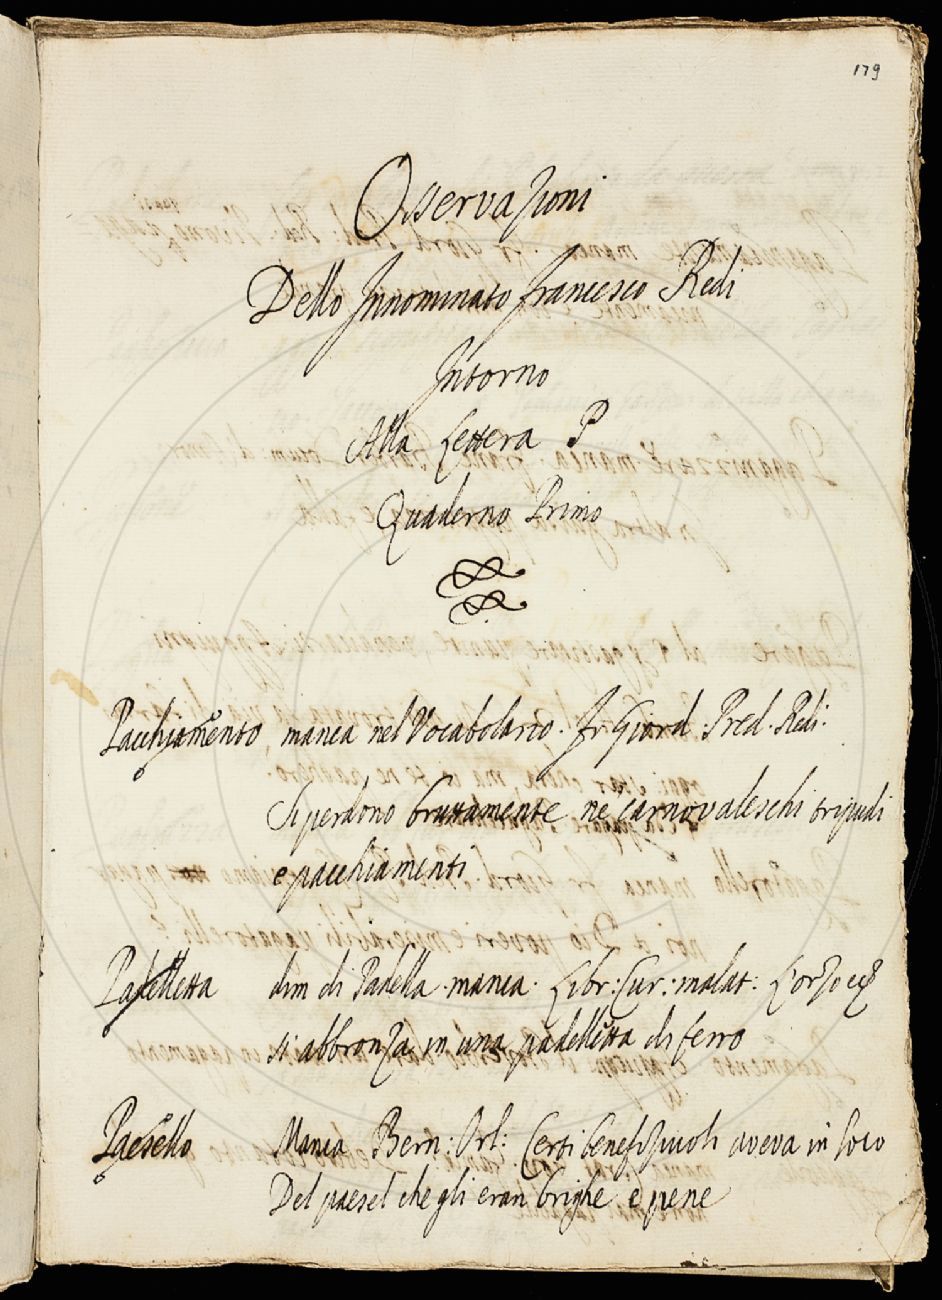 179
Osservazioni
Dello Innominato Francesco Redi
Intorno
Alla Lettera P
Quaderno Primo
Pacchiamento manca nel Vocabolario. Fr. Giord. Pred. Redi.
Si perdono bruttamente ne carnovaleschi tripudi
e pacchiamenti.
Padelletta dim di Padella. manca. Libr: Cur: malat: L'orzo
si abbronza in una padelletta di ferro
Paesello Manca Bern: Orl: Certi benefizuoli aveva in loco
Del paesel che gli eran brighe e pene